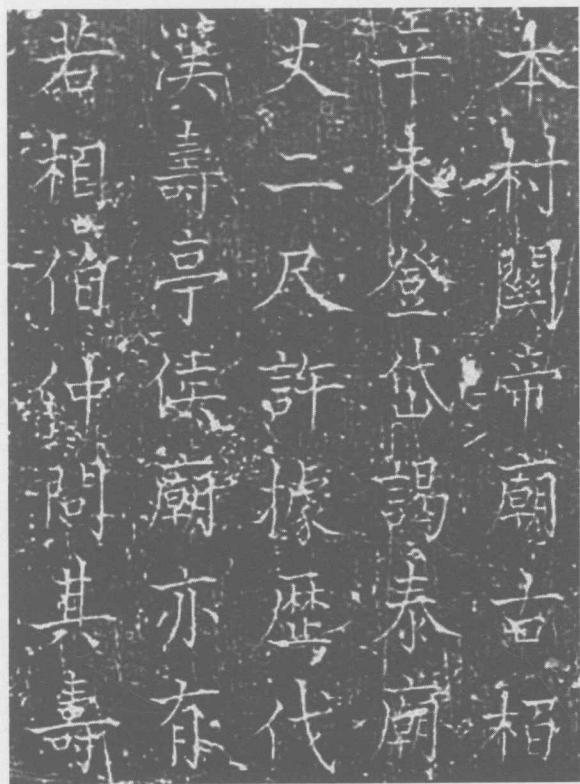 本村關帝廟古柏
辛未登岱謁泰廟
丈二尺許據歷代
漢壽亭侯廟亦有
若相伯仲問其壽